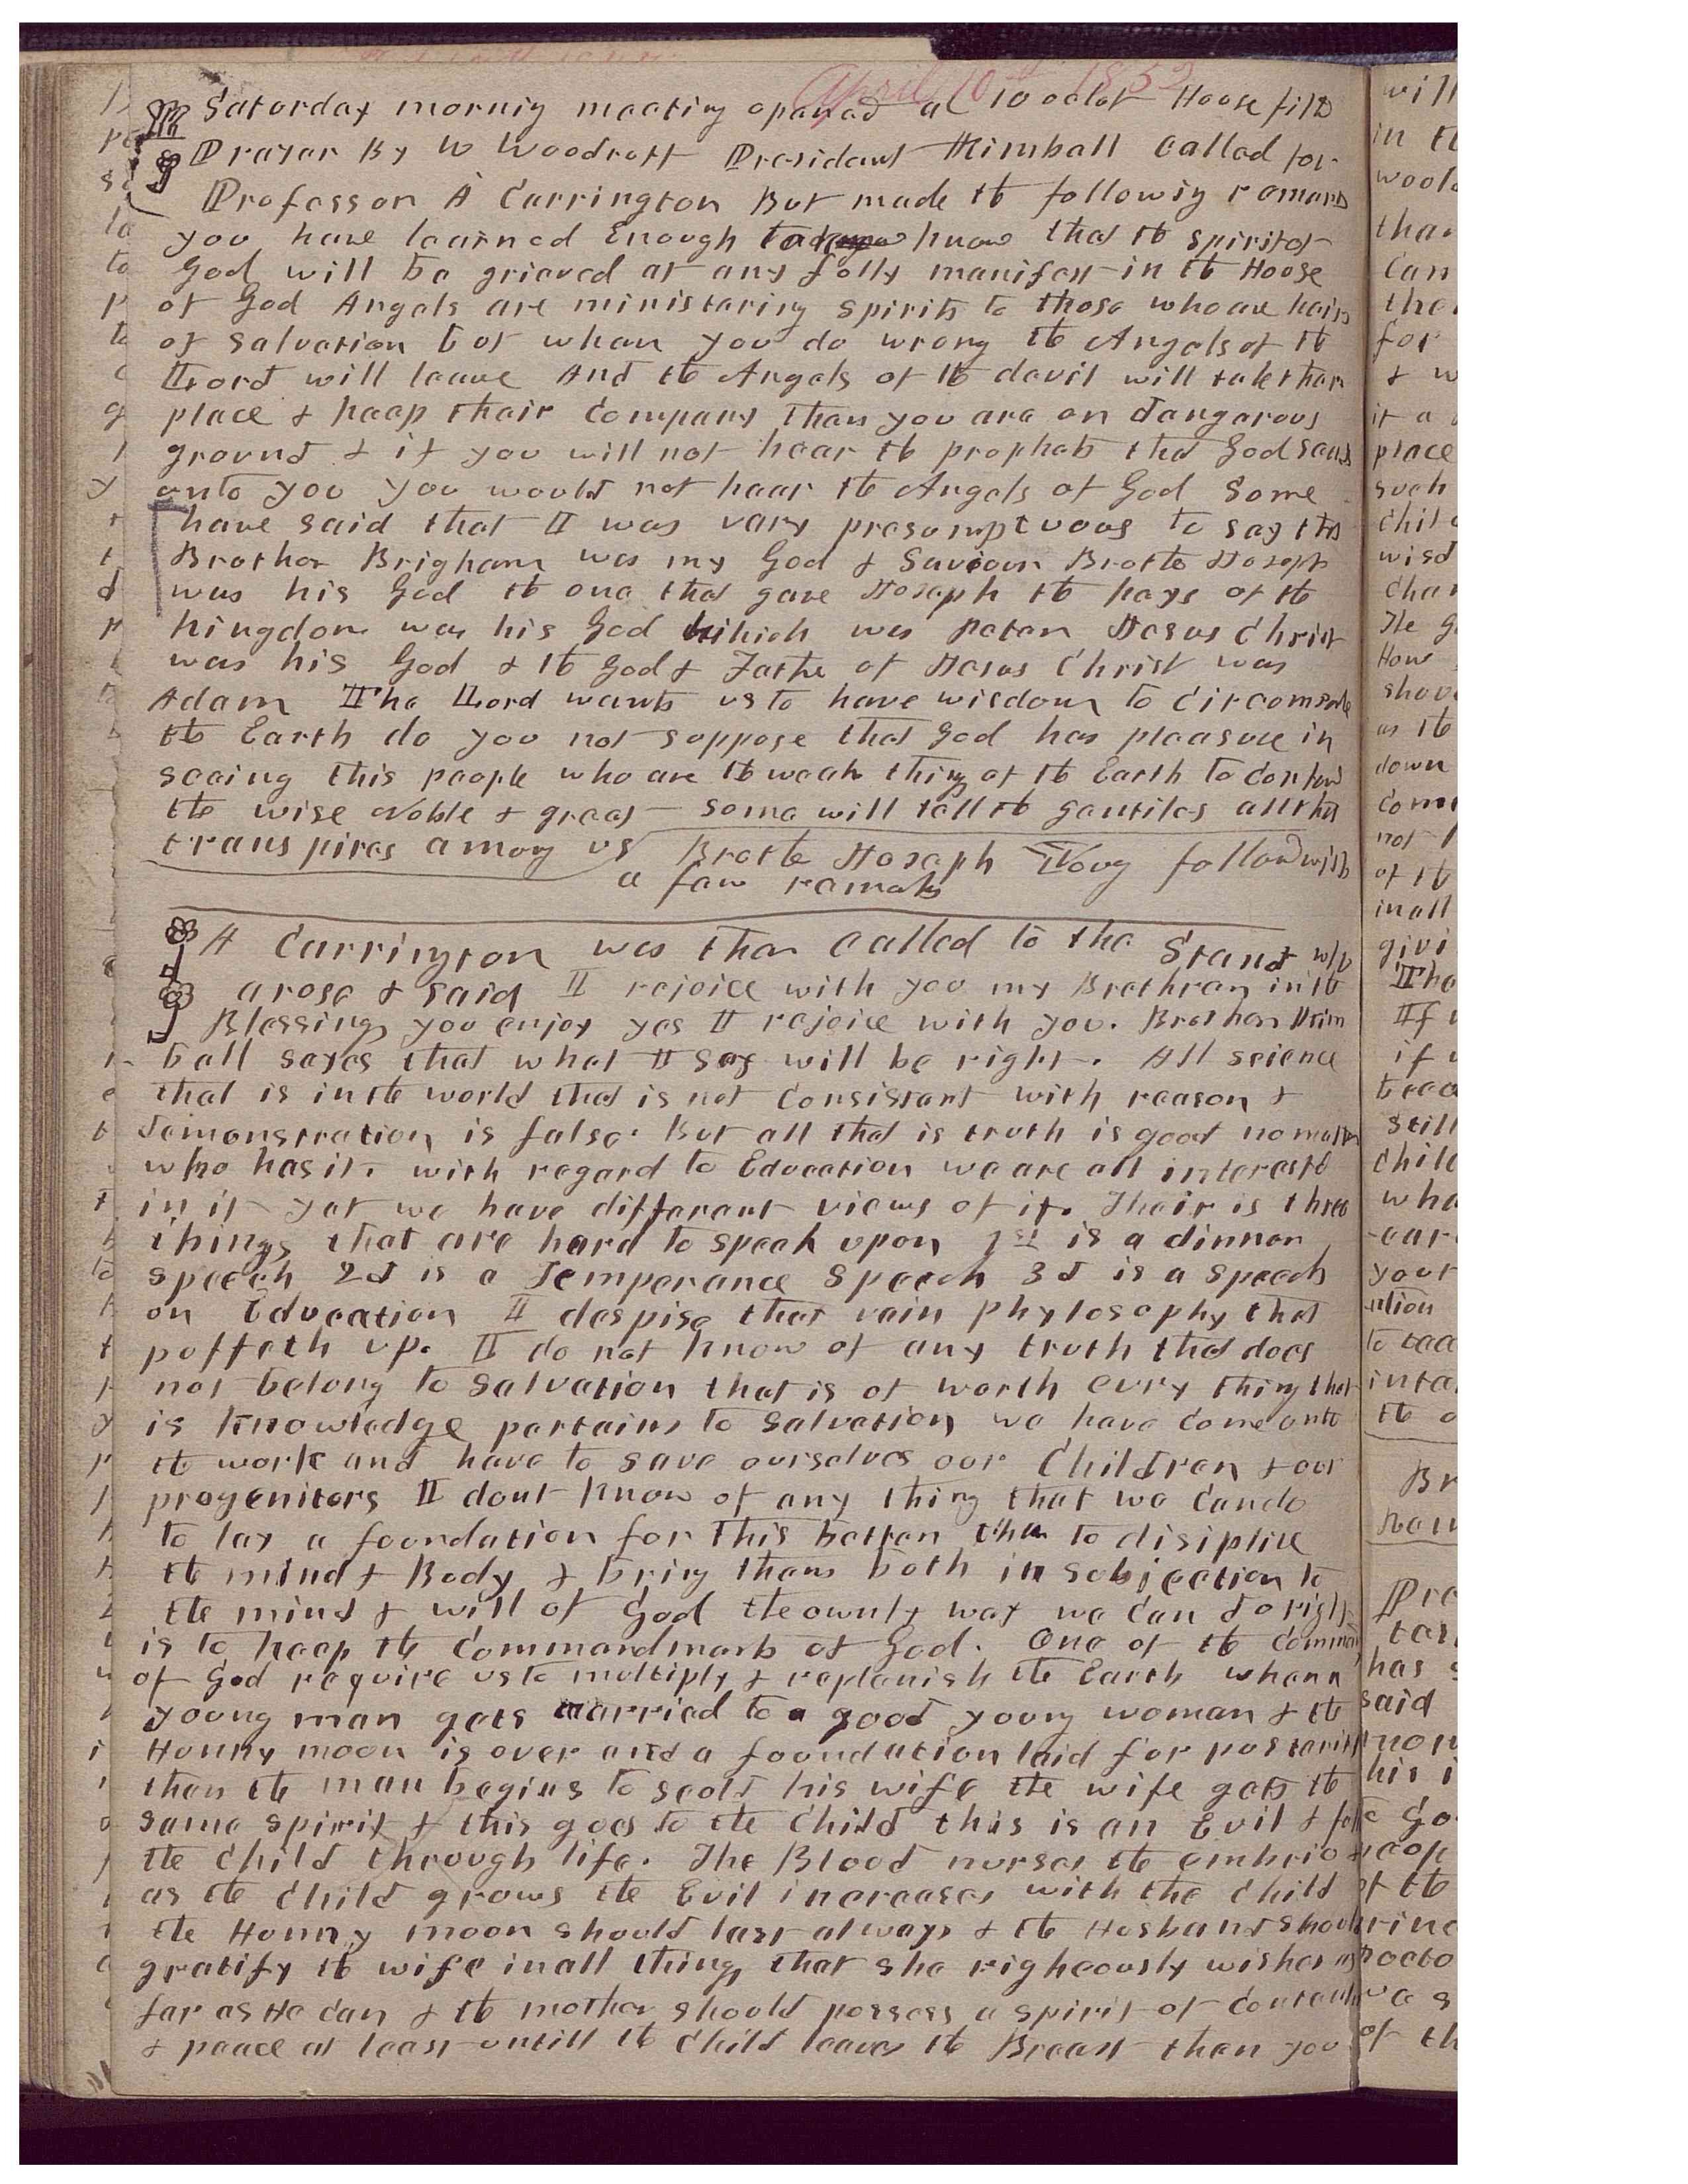 April 10th 1852
Saturday morning meeting opened at 10 oclok House filld
Prayer By W Woodruff President Kimball called for
Professor A Carrington But made the following remarks
you have learned Enough to know that the spirit of
God will be grieved at any folly manifest in the House
of God Angels are ministering spirits to those who are heirs
of salvation but when you do wrong the Angels of the
Lord will leave And the Angels of the devil will take their
place & keep their company then you are on dangerous
ground & if you will not hear the prophets that God sends
unto you you would not hear the Angels of God Some
have said that I was very presumptuous to say that
Brother Brigham was my God & Saviour Brother Joseph
was his God the one that gave Joseph the keys of the
kingdom was his God which was Peter Jesus Christ
was his God & the God & Father of Jesus Christ was
Adam The Lord wants us to have wisdom to circumscribe
the Earth do you not suppose that God has pleasure in
seeing this people who are the weak things of the Earth to confound
the wise Noble & great some will tell the gentiles all that
transpires among us Brother Joseph Young followed with
a few remarks
A Carrington was then called to the Stand who
arose & said I rejoice with you my Brethren in the
Blessings you enjoy yes I rejoice with you. Brother Kim
ball sayes that what I say will be right. All science
that is in the world that is not consistant with reason &
demonstration is false. But all that is truth is good no matter
who has it. with regard to Education we are all interested
in it yet we have different views of it. Their is three
things that are hard to speak upon 1st is a dinner
speech 2d is a Temperance Speech 3d is a speech
on Education I despise that vain phylosophy that
puffeth up. I do not know of any truth that does
not belong to salvation that is of worth evry thing that
is knowledge pertains to salvation we have come unto
the work and have to save ourselves our Children & our
progenitors I dont know of any thing that we can do
to lay a foundation for this better than to disipline
the mind & Body & bring them both in subjection to
the mind & will of God the ownly way we can do right
is to keep the commandments of God. One of the command
of God require us to multiply & replenish the Earth when a
young man gets married to a good young woman & the
Honny moon is over and a foundation laid for posterity
then the man begins to scold his wife the wife gets the
same spirit & this goes to the child this is an Evil &
the child through life. The Blood nurses the embrio &
as the child grows the Evil increases with the child
the Honny moon should last always & the Husband should
gratify the wife in all things that she righeously wishes as
far as He can & the mother should possess a spirit of content
& peace at least untill the Child leaves the Breast then you